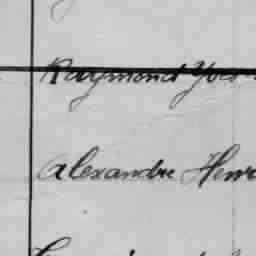 Raymond Yves
Alexandre Henri